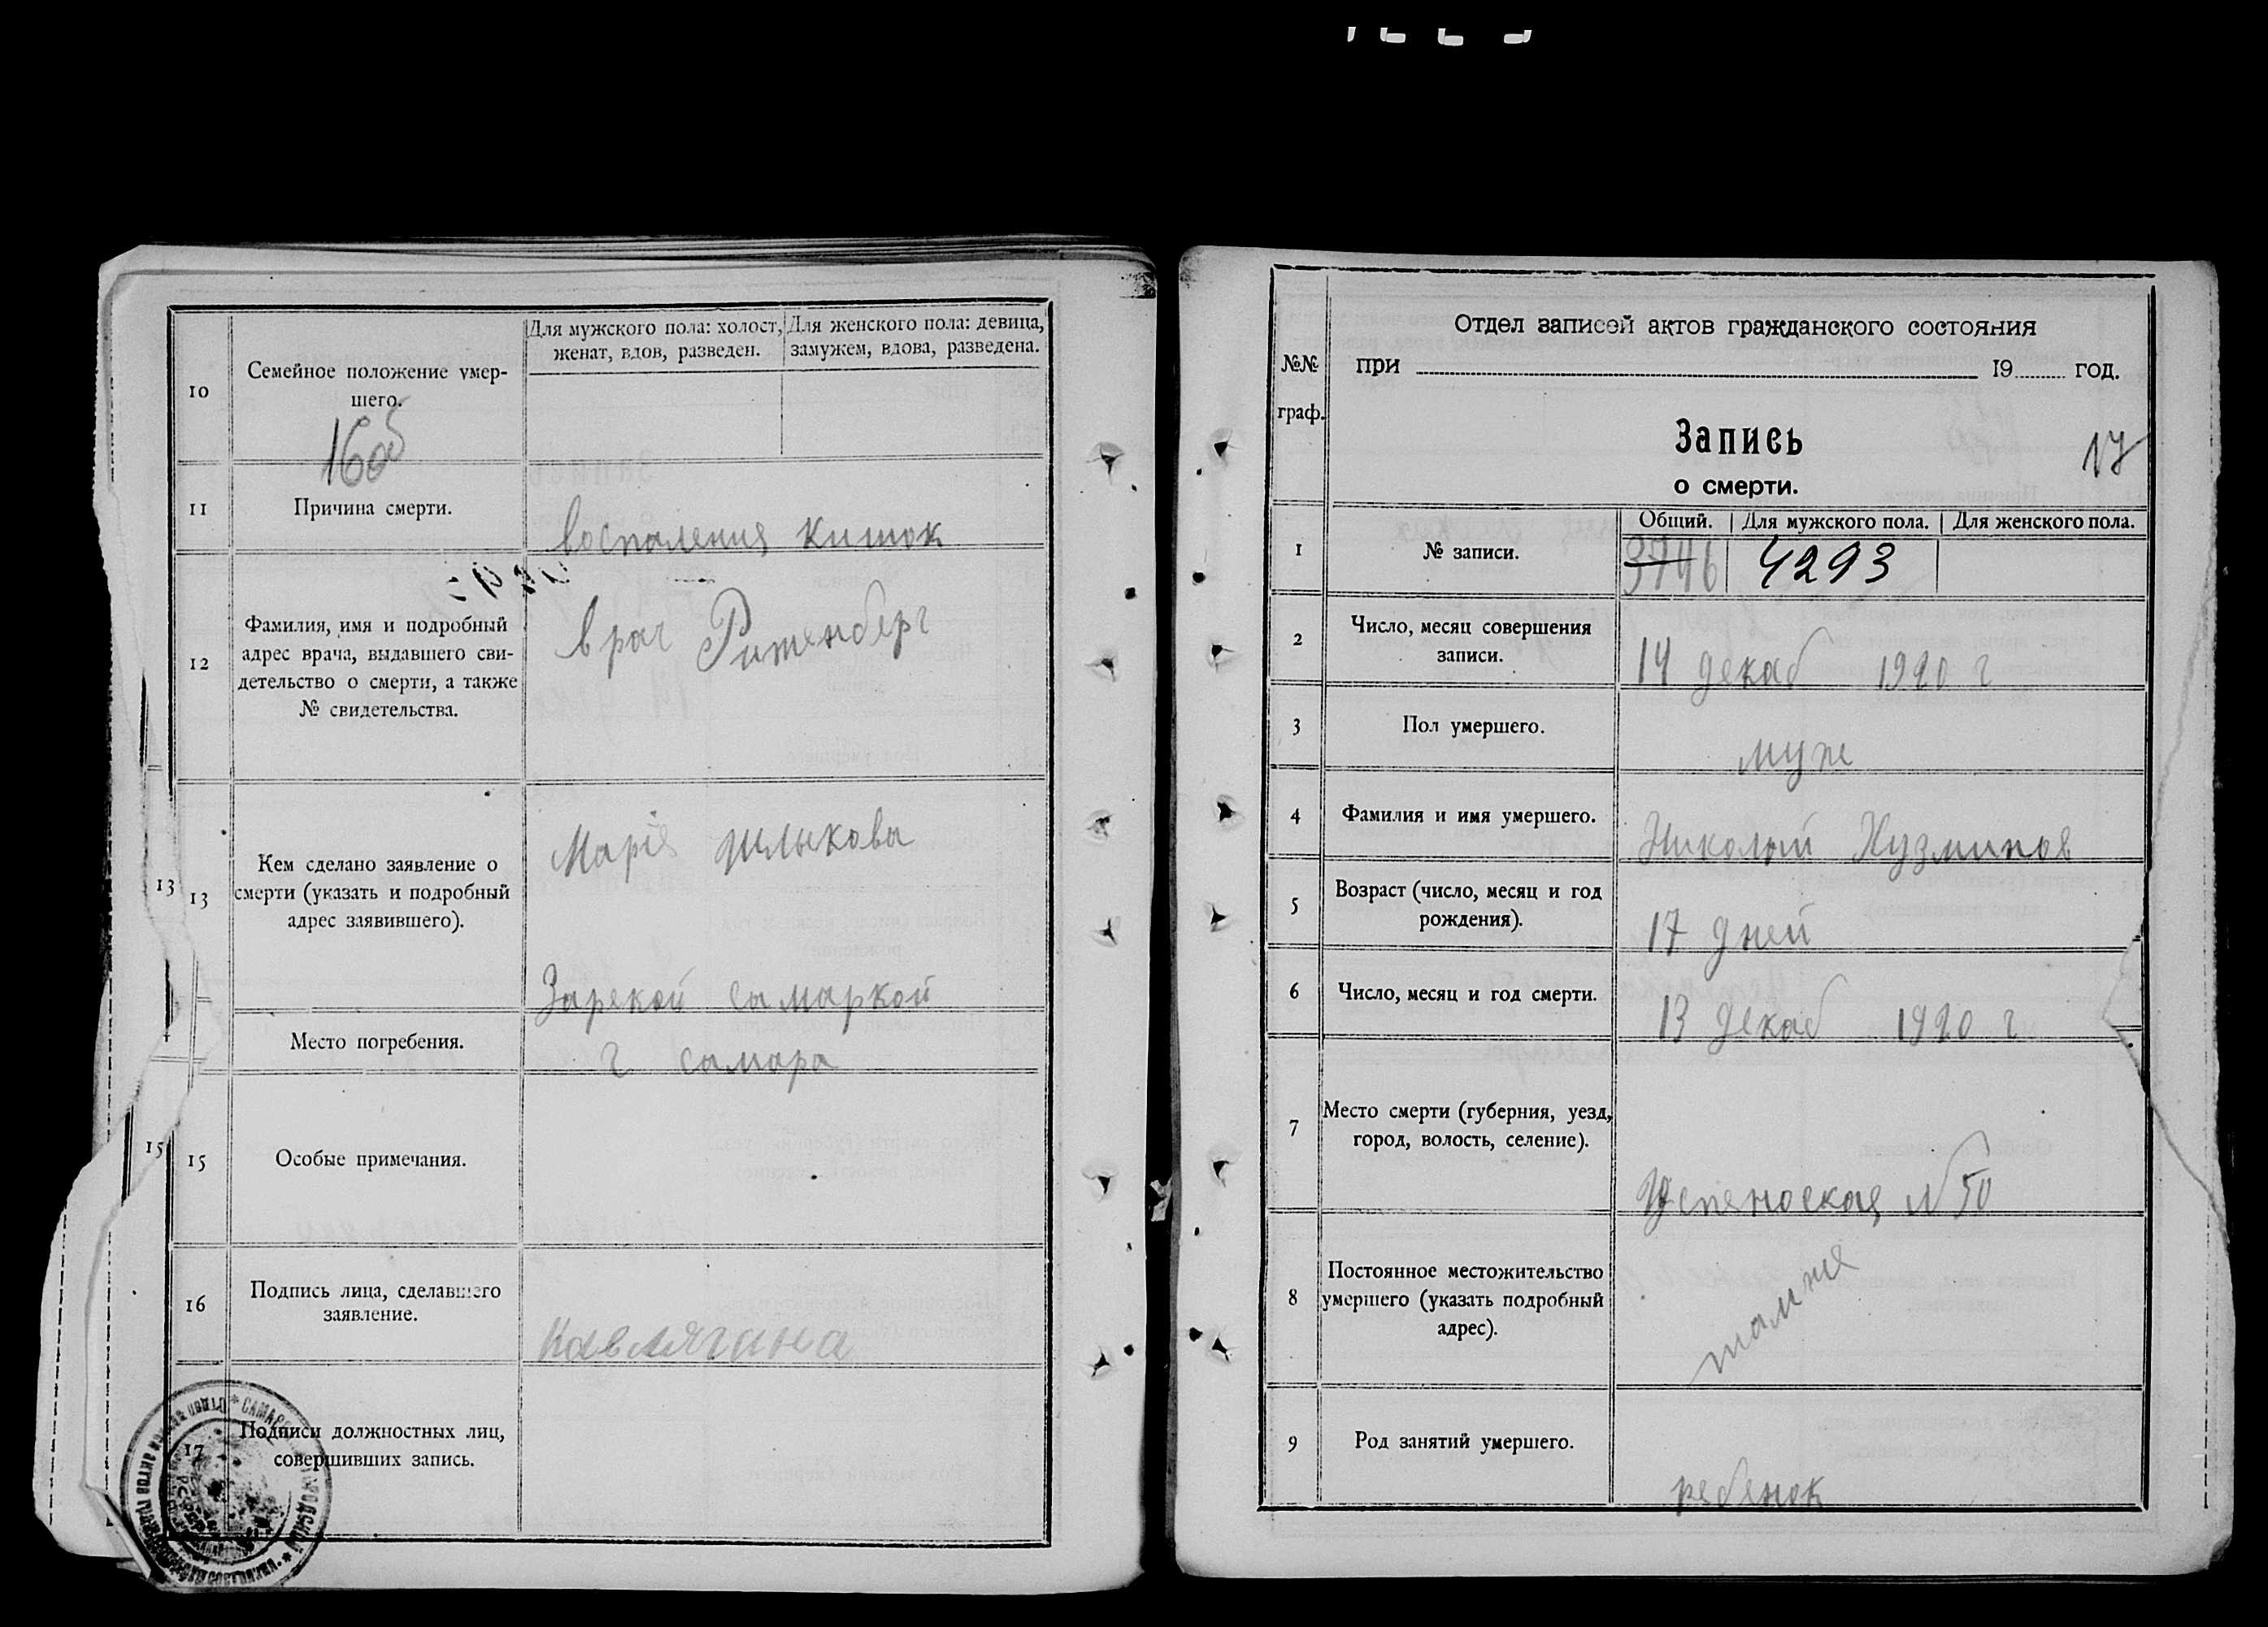 10
Семейное положение умер-
шего.
Для мужского пола: холост,
женат, вдов, разведен.
Для женского пола: девица,
замужем, вдова, разведена.
16об
11
Причина смерти.
воспаления кишок
12
Фамилия, имя и подробный
адрес врача, выдавшего сви-
детельство о смерти, а также
№ свидетельства.
врач Ритенберг
13
13
Кем сделано заявление о
смерти (указать и подробный
адрес заявившего).
Марія Шлыкова
Зарекой самаркой
Место погребения.
г самара
15
15
Особые примечания.
16
Подпись лица, сделавшего
заявление.
17
Подписи должностных лиц,
совершивших запись.
№№
граф.
Отдел записей актов гражданского состояния
при 19 год.
Запись
о смерти.
17
1
№ записи.
Общий. Для мужского пола. Для женского пола.
3746 4293
2
Число, месяц совершения
записи.
14 декаб 1920 г
3
Пол умершего.
муж
4
Фамилия и имя умершего.
Николай Кузминов
5
Возраст (число, месяц и год
рождения).
17 дней
6
Число, месяц и год смерти.
13 декаб 1920 г
7
Место смерти (губерния, уезд,
город, волость, селение).
№ 50
8
Постоянное местожительство
умершего (указать подробный
адрес).
тамже
9
Род занятий умершего.
ребенок